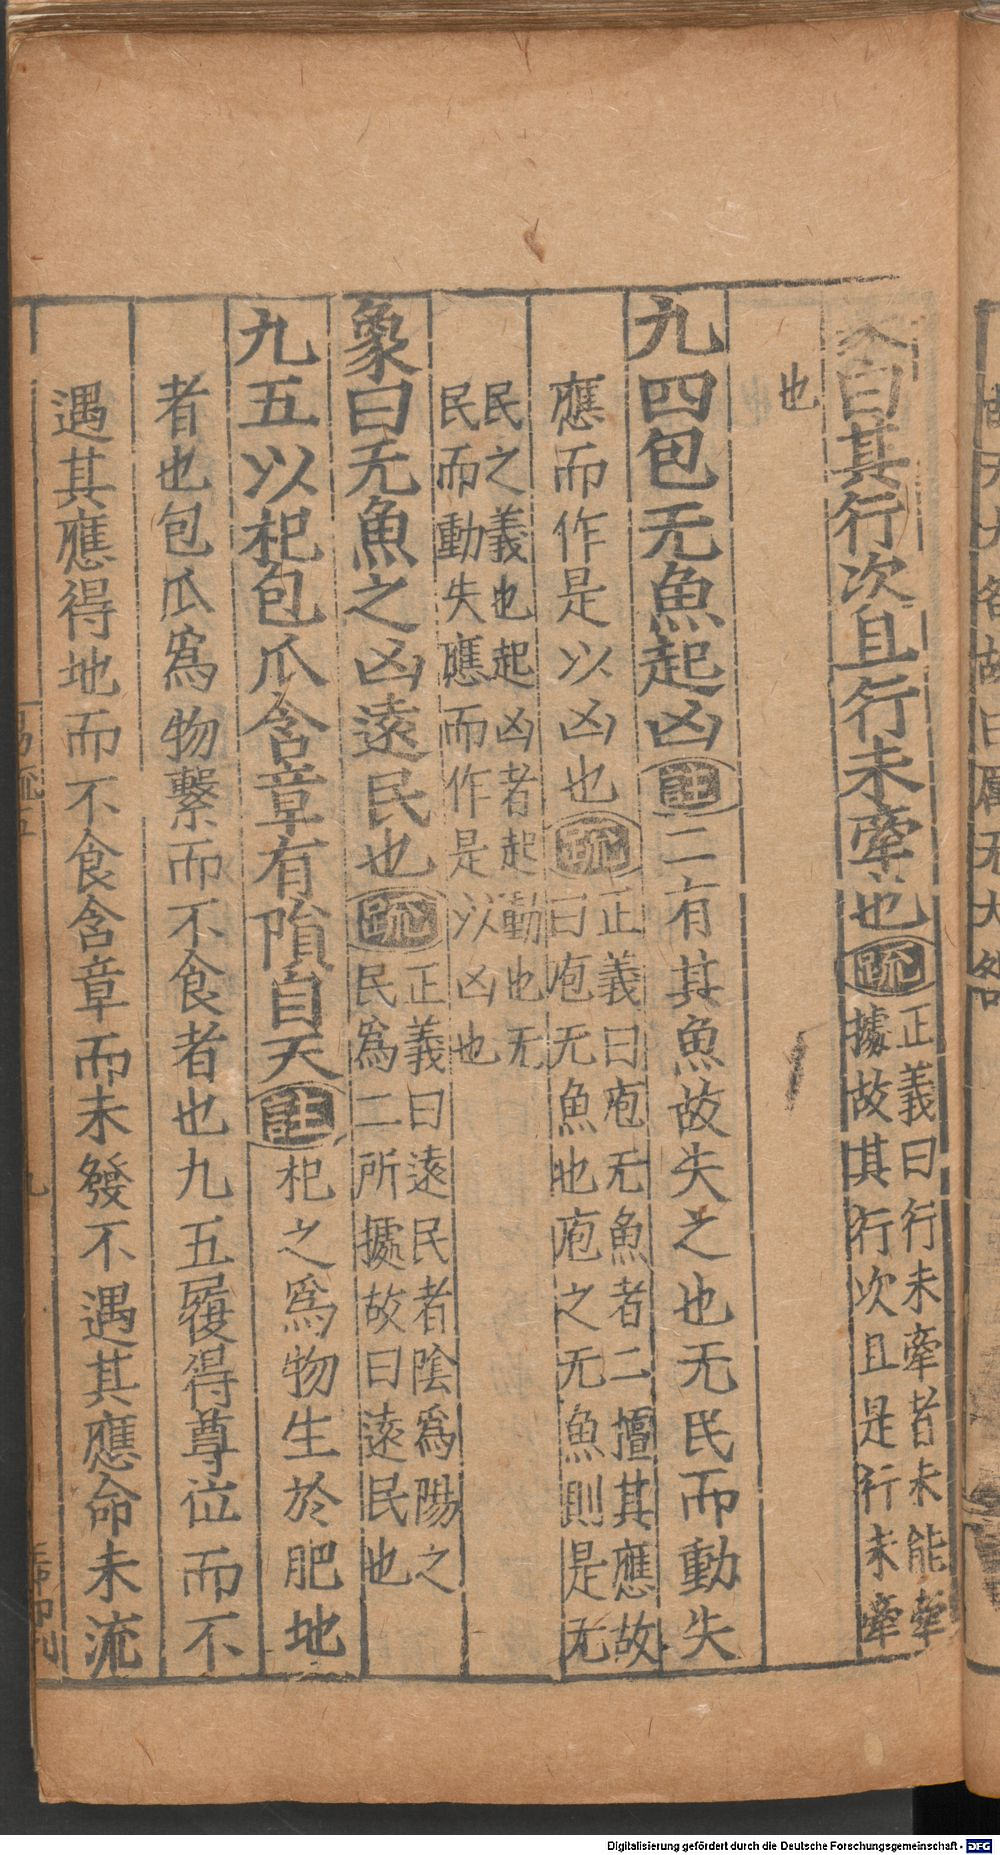 象曰其行次且行未牽也疏正義曰行未牽者未能牽
據故其行次且是行未牽
也
九四包无魚起凶註二有其魚故失之也无民而動失
應而作是以凶也疏正義曰庖无魚者二擅其應故
曰庖无魚也庖之无魚則是无
民之義也起凶者起動也无
民而動失應而作是以凶也
象曰无魚之凶遠民也疏正義曰遠民者陰爲陽之
民爲二所據故曰遠民也
九五以杞包瓜含章有隕自天註杞之爲物生於肥地
者也包瓜爲物繫而不食者也九五履得尊位而不
遇其應得地而不食含章而未發不遇其應命未流
九
Digitalisierung gefördert durch die Deutsche Forschungsgemeinschaft - DFG